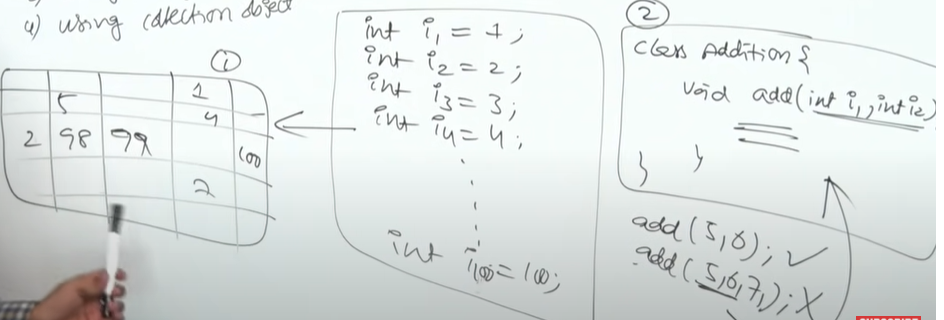 4) using collection object
①
5 1
4
2 98 99
100
2
int i1 = 1;
int i2 = 2;
int i3 = 3;
int i4 = 4;
int i100 = 100;
②
class Addition {
void add(int i1, int i2)
}
}
add(5,6); ✓
add(5,6,7,); X